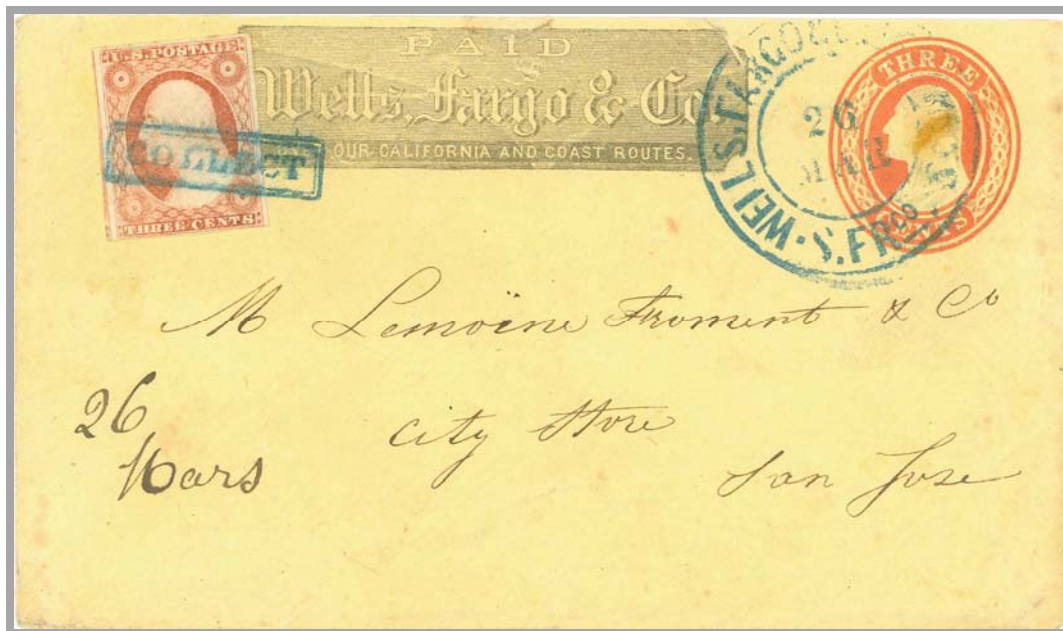 U.S. POSTAGE
THREE CENTS
COLLECT
PAID
Wells, Fargo & Co
OUR CALIFORNIA AND COAST ROUTES.
WELLS. FARGO &
26
MAR
S. FR
THREE
CENTS
M Lemoine Froment & Co
City Store
San Jose
26
Mars